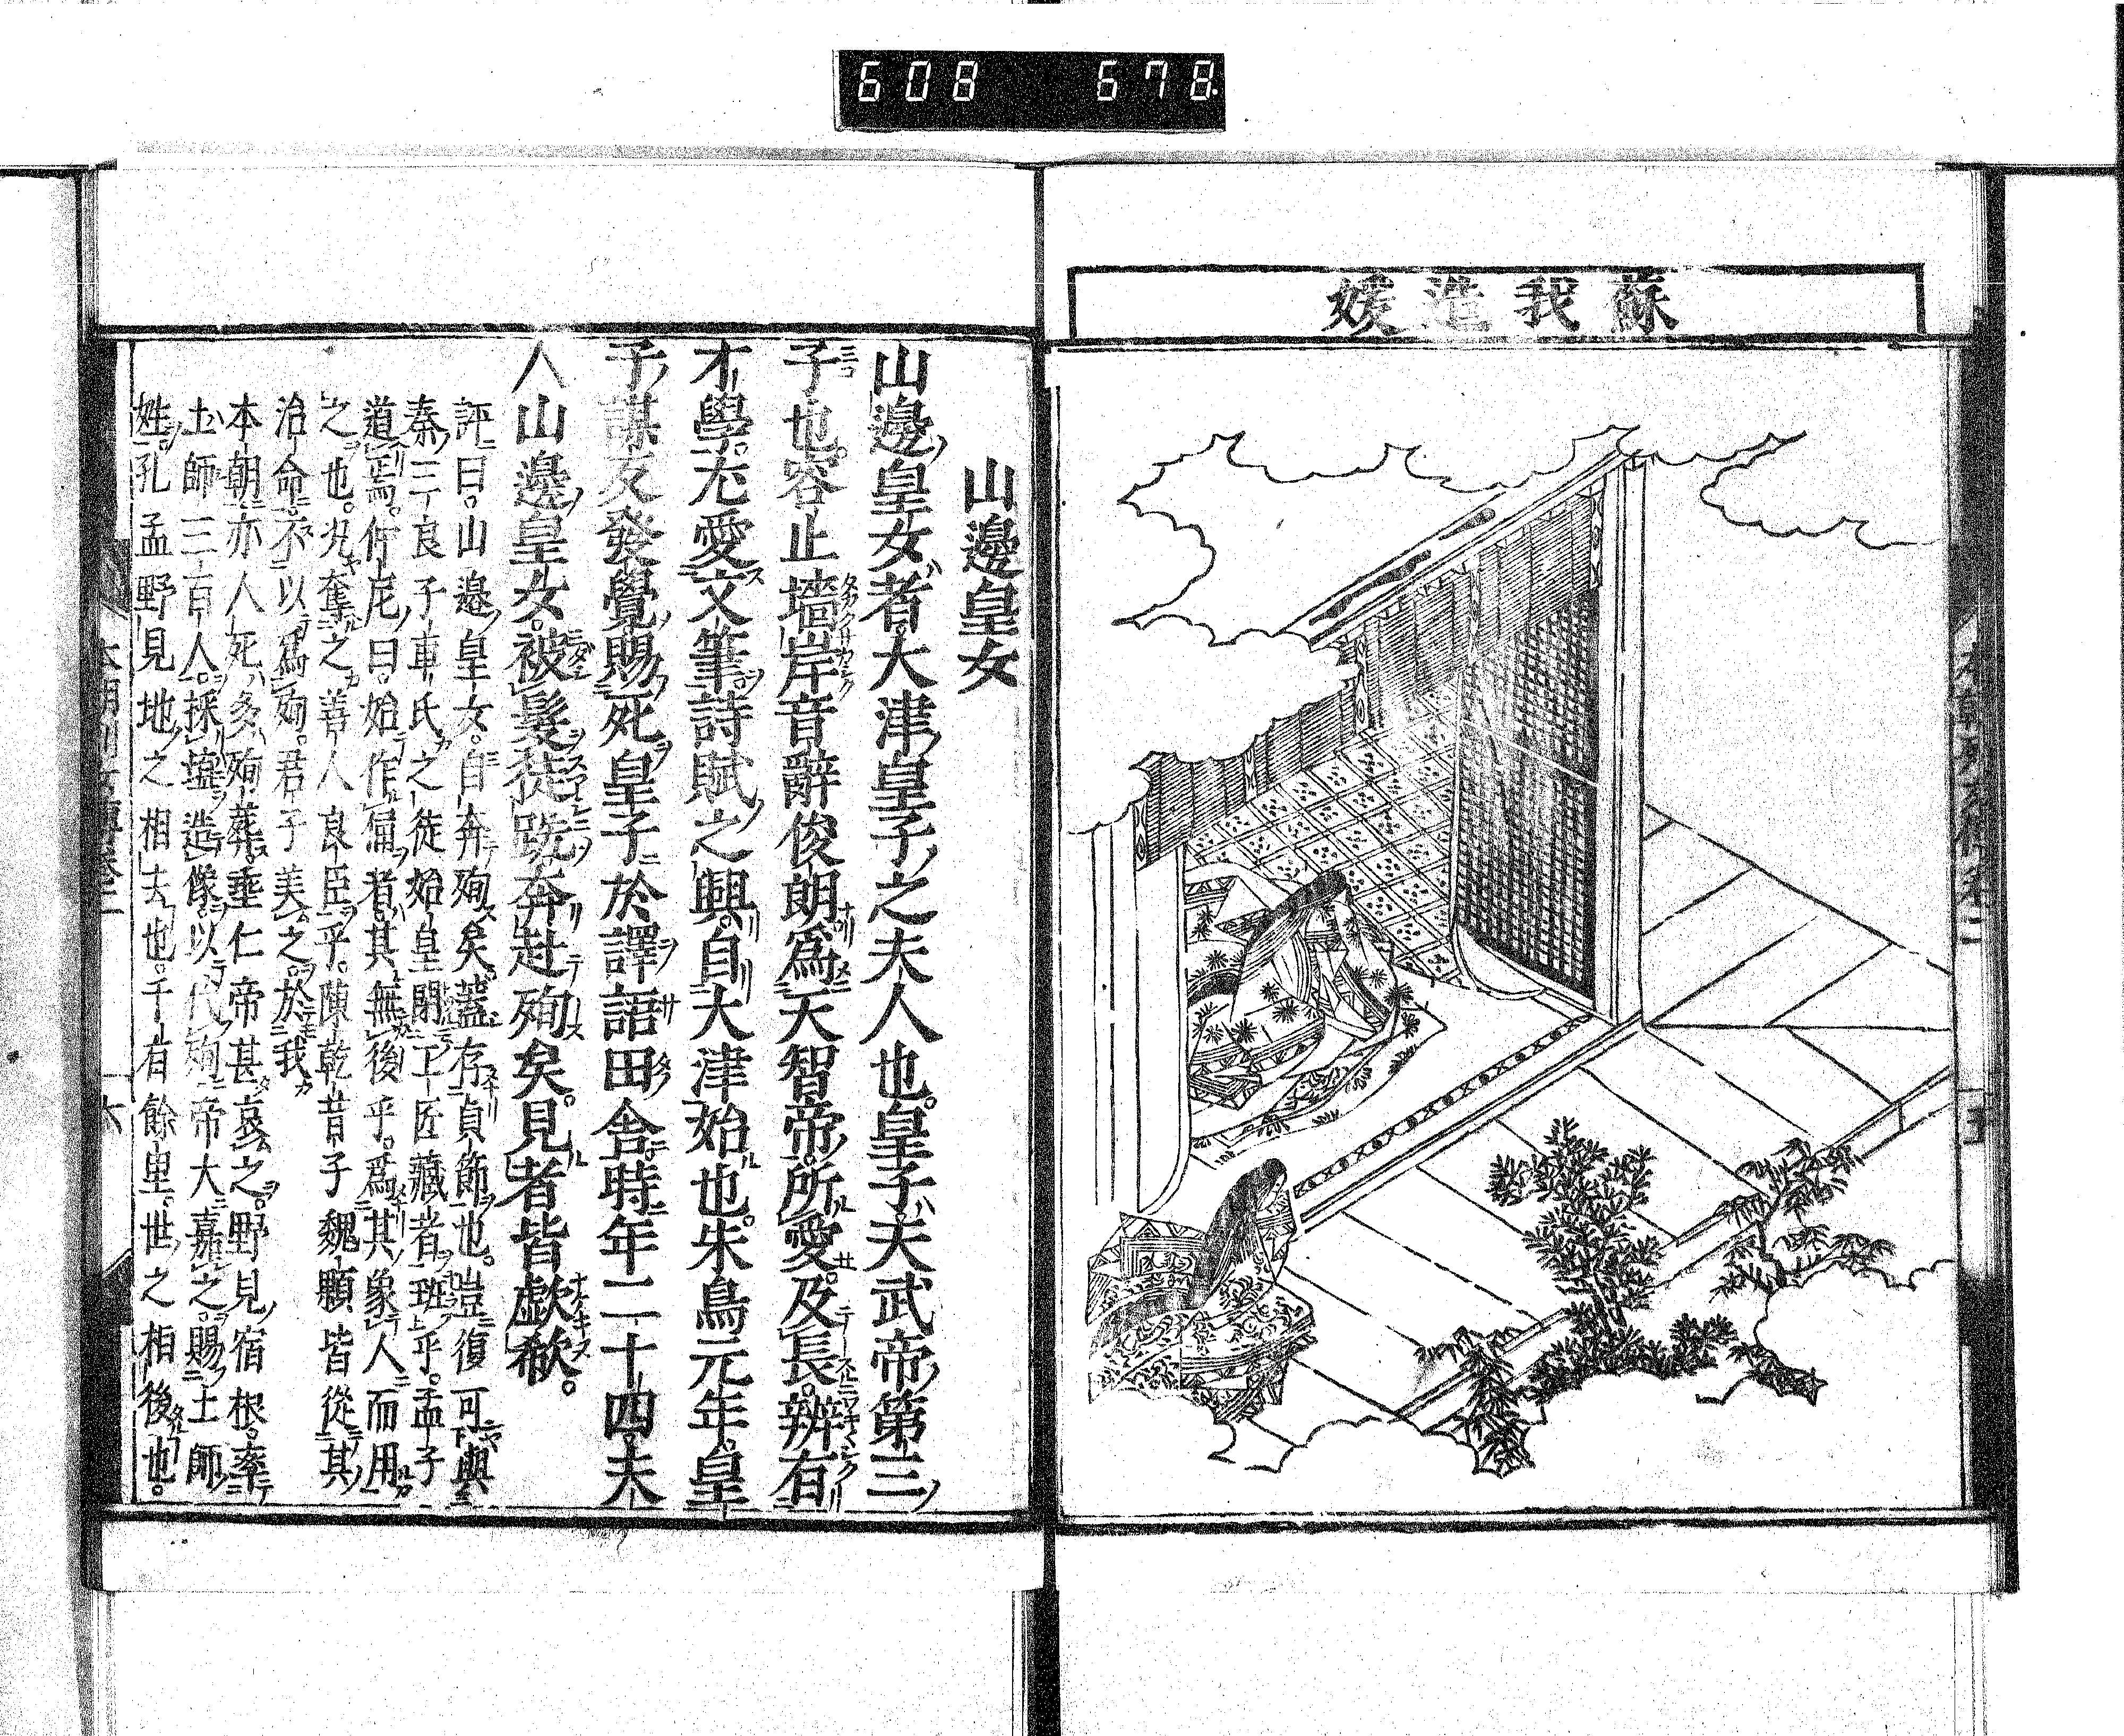 608 678
蘇我造媛
山邊皇女
山邊皇女者大津皇子之夫人也皇子天武帝第三
子也容止墻岸音辭俊朗爲天智帝所愛及長辨有
才學尤愛文筆詩賦之興自大津始也朱鳥元年皇
子謀反發覺賜死皇子於譯語田舍時年二十四夫
人山邊皇女被髮徒跣奔赴殉矣見者皆歔欷
評曰山邊皇女自奔殉矣蓋存貞節也豈復可與
秦三良子車氏之徒始皇閉工匠藏者班乎孟子
道焉仲尼曰始作俑者其無後乎爲其象人而用
之也況奪之善人良臣乎陳乾昔子魏顆皆從其
治命不以爲殉君子美之於我
本朝亦人死多殉葬垂仁帝甚哀之野見宿根率
土師三百人採埴造像以代殉帝大嘉之賜土師
姓孔孟野見地之相去也千有餘里世之相後也
本朝列女傳卷二
六